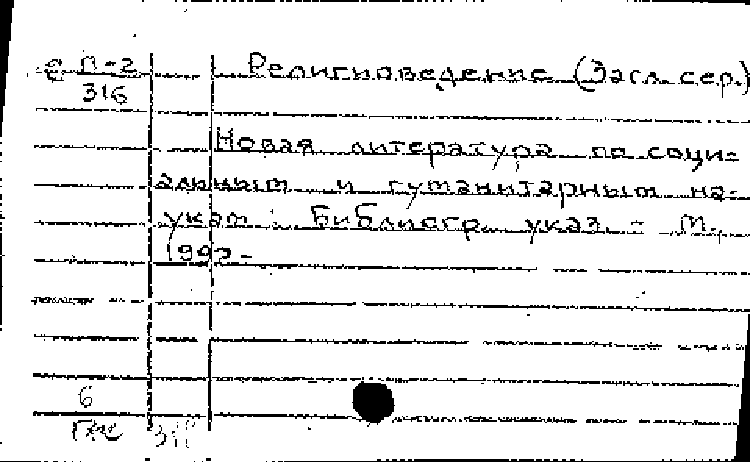 с П-2
316
Религиоведение (Загл. сер.)
Новая литература по соци-
альным и гуманитарным на-
укам : Библиогр. указ. - М.,
1992-
6